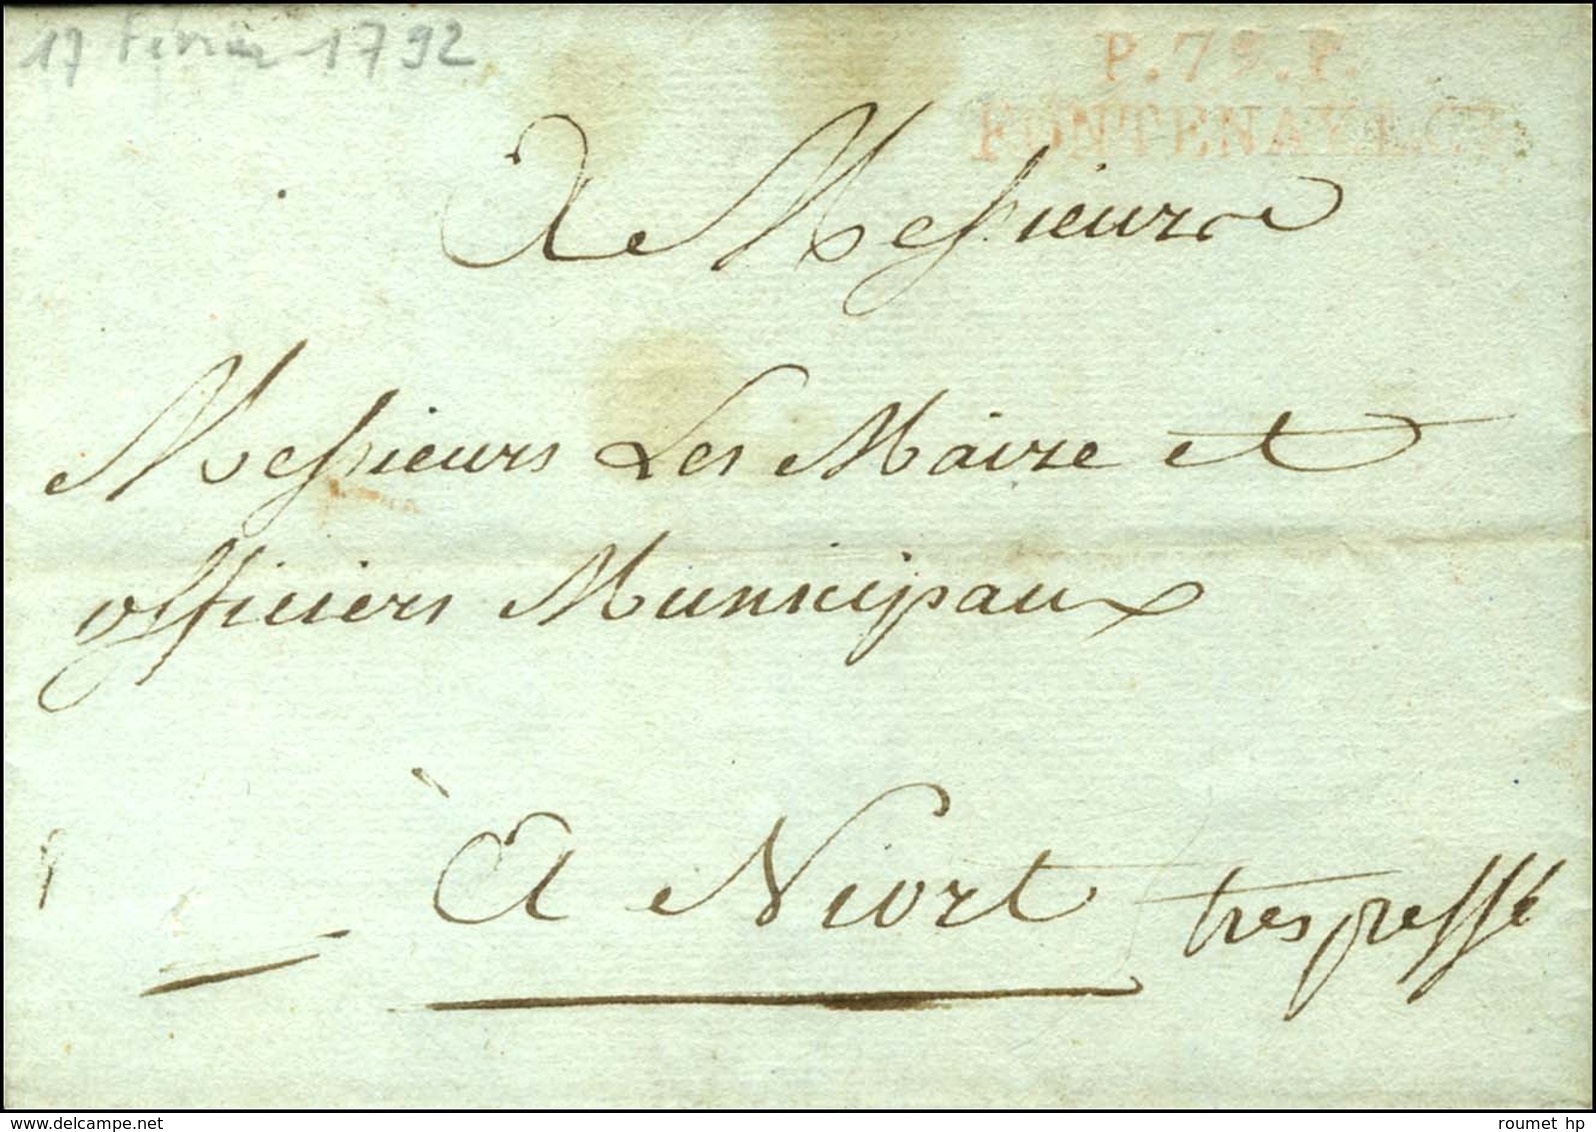 17 Février 1792
P.79.P.
FONTENAY.L.C
A Messieurs
Messieurs Les Maire et
officiers Municipaux
A Niort
tres pressé
roumet hp